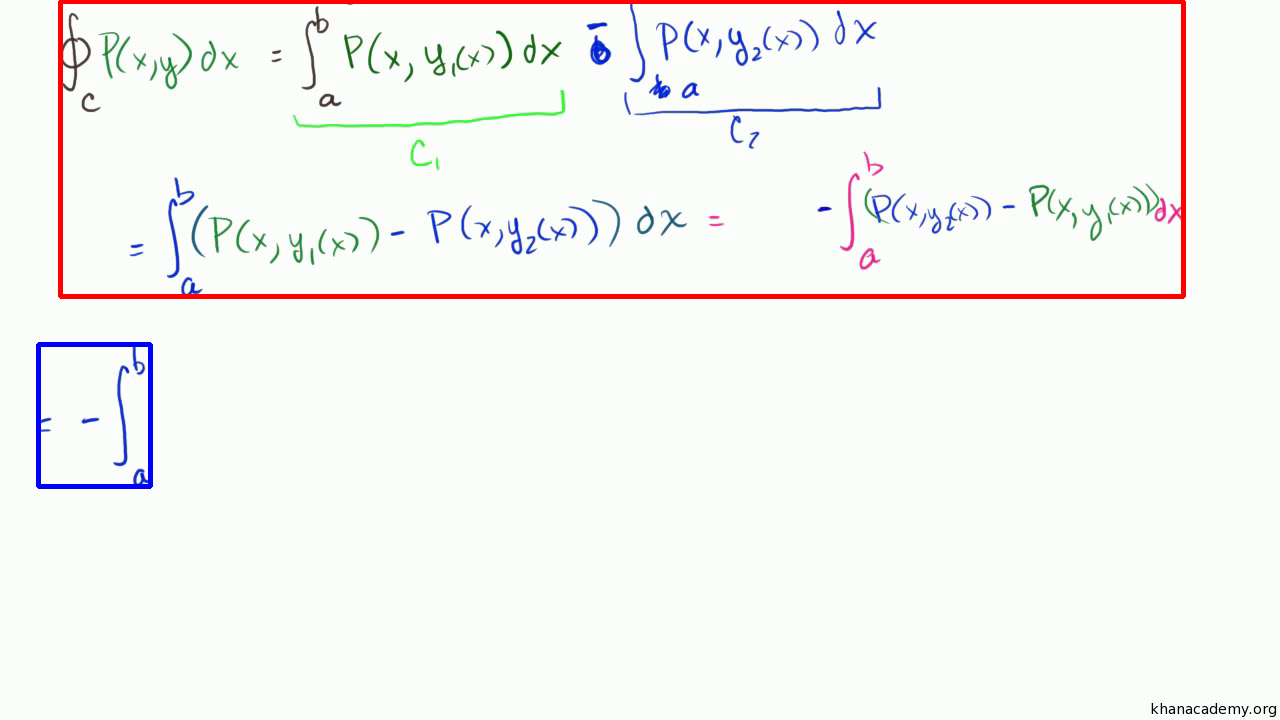 ∮_C P(x,y)dx = ∫_a^b P(x, y₁(x))dx - ∫_a P(x, y₂(x))dx
C₁ C₂
= ∫_a^b (P(x, y₁(x)) - P(x, y₂(x))) dx = - ∫_a^b (P(x, y₂(x)) - P(x, y₁(x)))dx
= - ∫_a^b
khanacademy.org